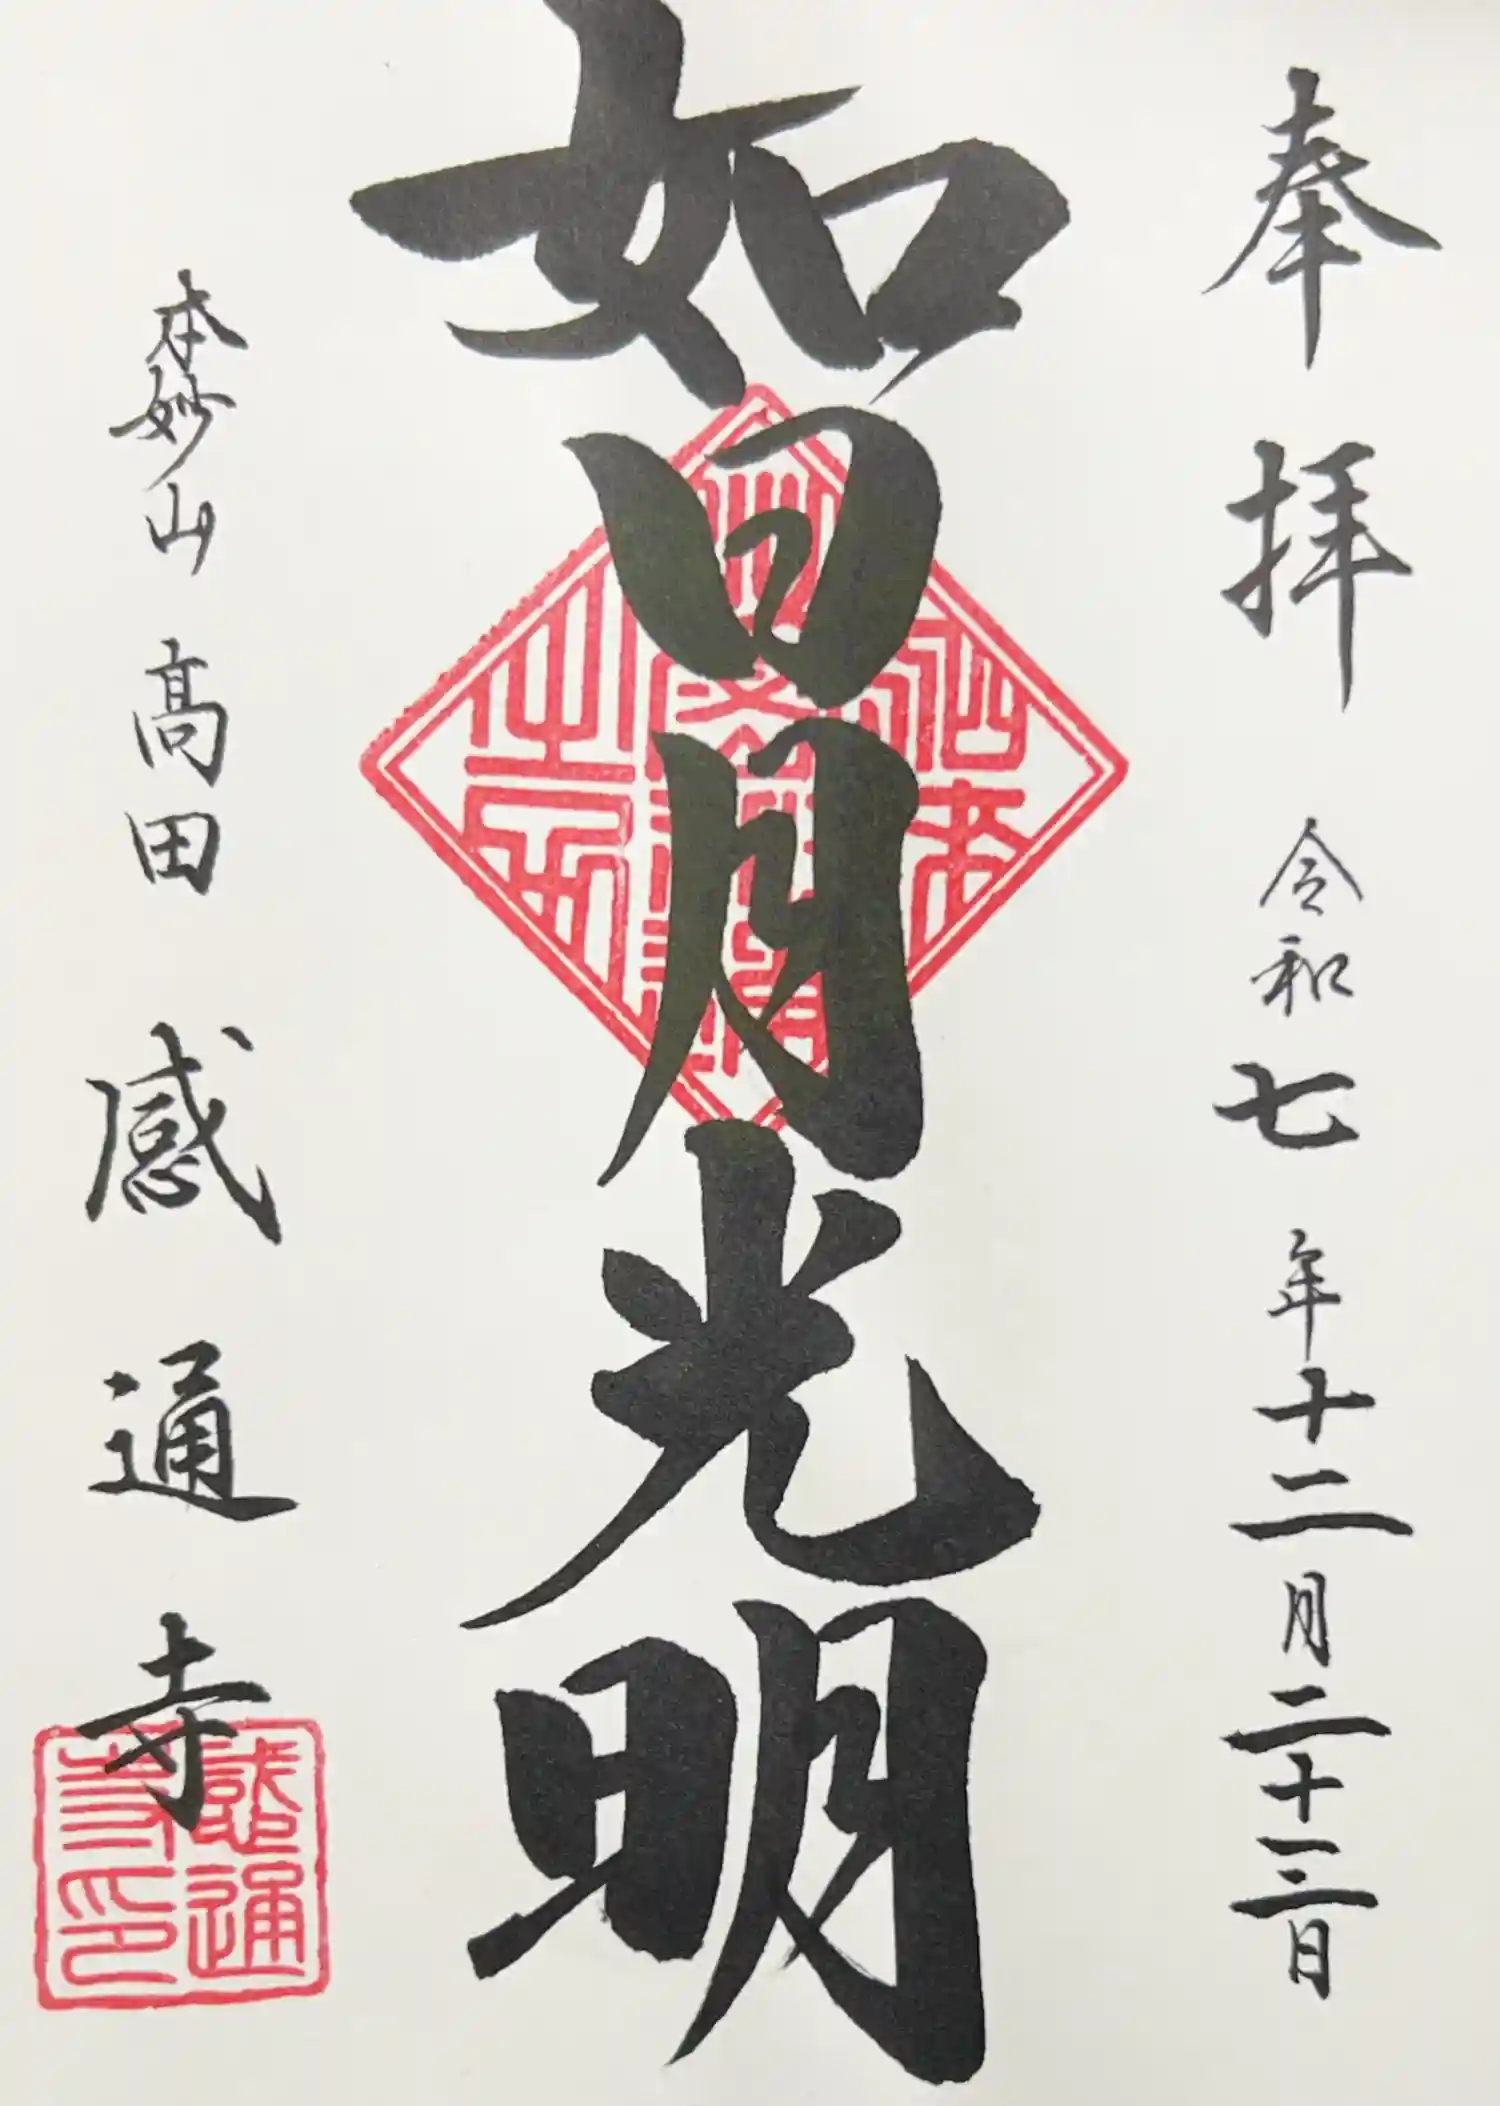 奉拝 令和七年十二月二十三日
如日月光明
本妙山 高田 感通寺
感通寺印